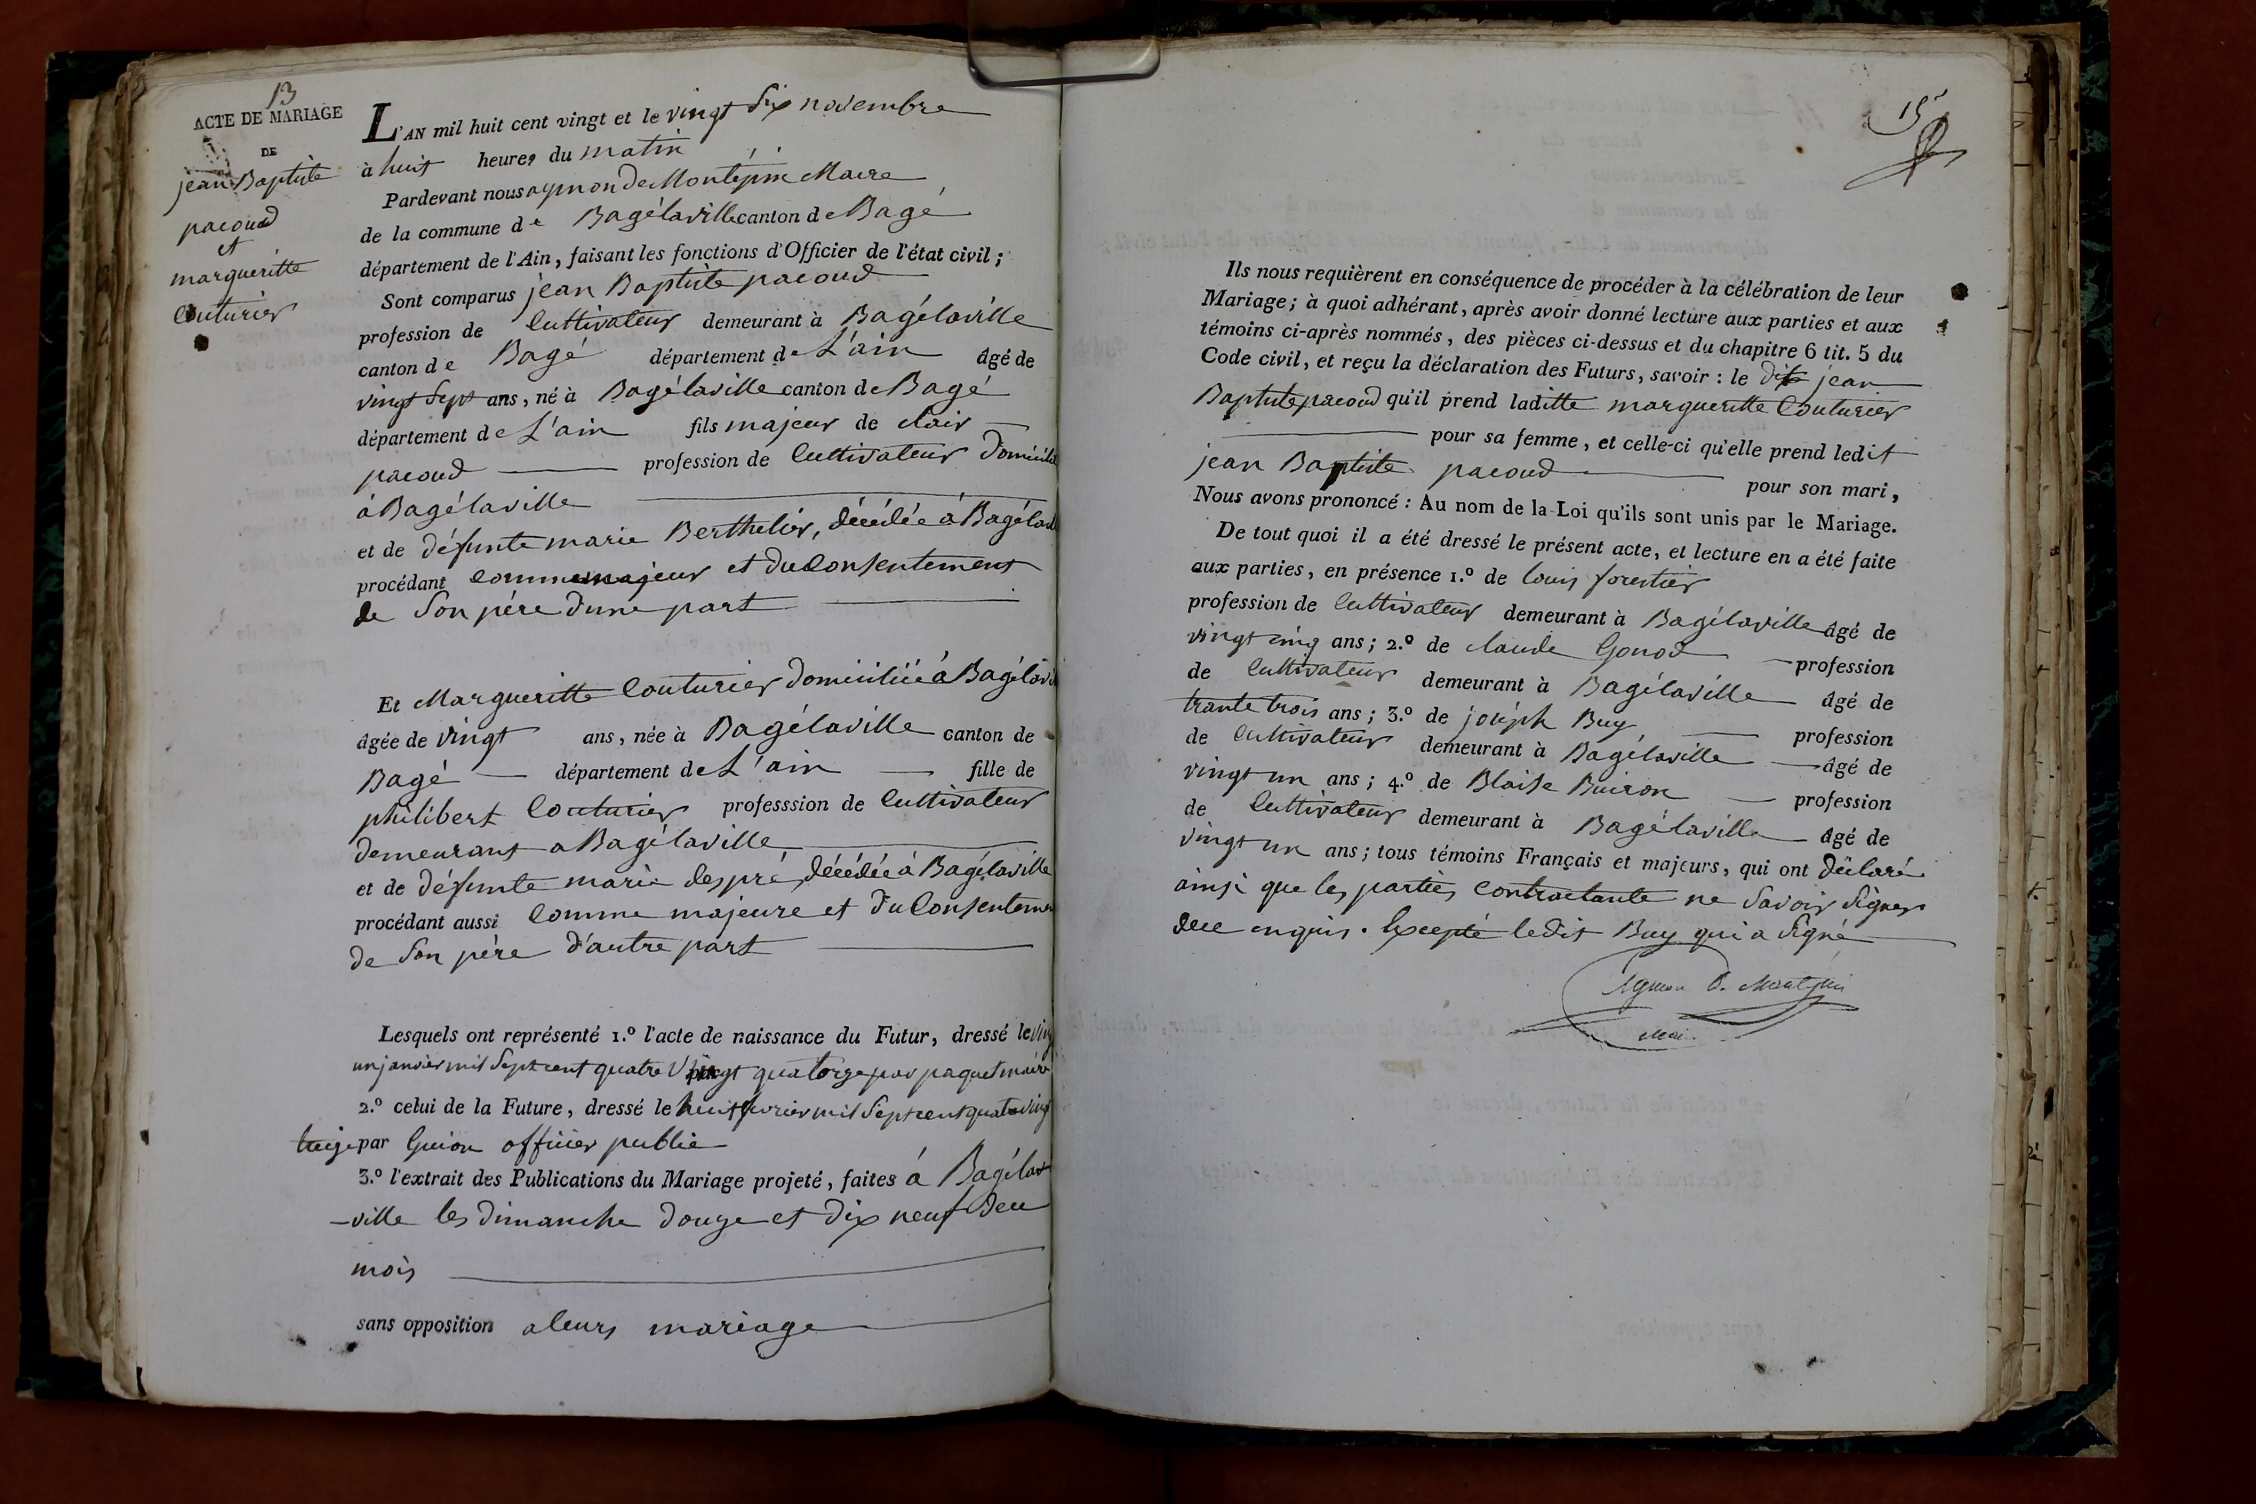 13
ACTE DE MARIAGE
DE
jean Baptiste
pacoud
et
margueritte
Couturier
L'AN mil huit cent vingt et le vingt Six novembre
à huit heures du matin
Pardevant nous aymon de Montépin Maire
de la commune de Bagélaville canton de Bagé
département de l'Ain, faisant les fonctions d'Officier de l'état civil;
Sont comparus jean Baptiste pacoud
profession de Cultivateur demeurant à Bagélaville
canton de Bagé département de L'ain âgé de
vingt Sept ans, né à Bagélaville canton de Bagé
département de L'ain fils majeur de clair
pacoud profession de Cultivateur Domicilié
á Bagélaville
et de défunte marie Berthelier, décédée á Bagélavil
procédant comme majeur et du Consentement
de Son pére d'une part
Et Margueritte Couturier domiciliée á Bagélavil
âgée de vingt ans, née à Bagélaville canton de
Bagé département de L'ain fille de
philibert Couturier professsion de Cultivateur
demeurant a Bagélaville
et de défunte marie despré, décédée á Bagélaville
procédant aussi Comme majeure et du Consentemen
de Son pére d'autre part
Lesquels ont représenté 1.º l'acte de naissance du Futur, dressé le ving
un janvier mil Sept cent quatre vingt quatorze par paquet maire
2.º celui de la Future, dressé le huit fevrier mil Sept cent quatre ving
treize par Guion officier public
3.º l'extrait des Publications du Mariage projeté, faites á Bagéla
-ville les dimanche douze et dix neuf deu
mois
sans opposition a leurs mariage
15
Ils nous requièrent en conséquence de procéder à la célébration de leur
Mariage; à quoi adhérant, après avoir donné lecture aux parties et aux
témoins ci-après nommés, des pièces ci-dessus et du chapitre 6 tit. 5 du
Code civil, et reçu la déclaration des Futurs, savoir: le dit jean
Baptiste pacoud qu'il prend laditte margueritte Couturier
pour sa femme, et celle-ci qu'elle prend ledit
jean Baptiste pacoud pour son mari,
Nous avons prononcé: Au nom de la Loi qu'ils sont unis par le Mariage.
De tout quoi il a été dressé le présent acte, et lecture en a été faite
aux parties, en présence 1.º de louis forestier
profession de Cultivateur demeurant à Bagélaville âgé de
vingt cinq ans; 2.º de claude Gonod profession
de Cultivateur demeurant à Bagélaville âgé de
trante trois ans; 3.º de joséph Buy profession
de Cultivateur demeurant à Bagélaville âgé de
vingt un ans; 4.º de Blaise Buiron profession
de Cultivateur demeurant à Bagélaville âgé de
vingt un ans; tous témoins Français et majeurs, qui ont déclaré
ainsi que les parties contractante ne Savoir Signer
dece enquis. Excepté ledit Buy qui a Signé
Aymon d. Montépin
Mai